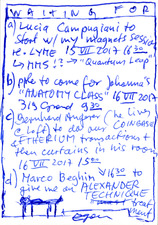 WAITING FOR
a) Lucia Campugiani to
start w/ my magnets session
re. LYME 15 VII 2017 16:30
→ MMS!? → "Quantum Leap"
b) pple to come for Johanna's
"ANATOMY CLASS" 16 VII 2017
319 9:35
c) Bernhard (he lives
c left) to do our COINBASE
ETHERIUM transactions &
then curtains in his room
16 VII 2017 15:00
d) Marco Beghin 16:30 to
give me an ALEXANDER
TECHNIQUE
treatment